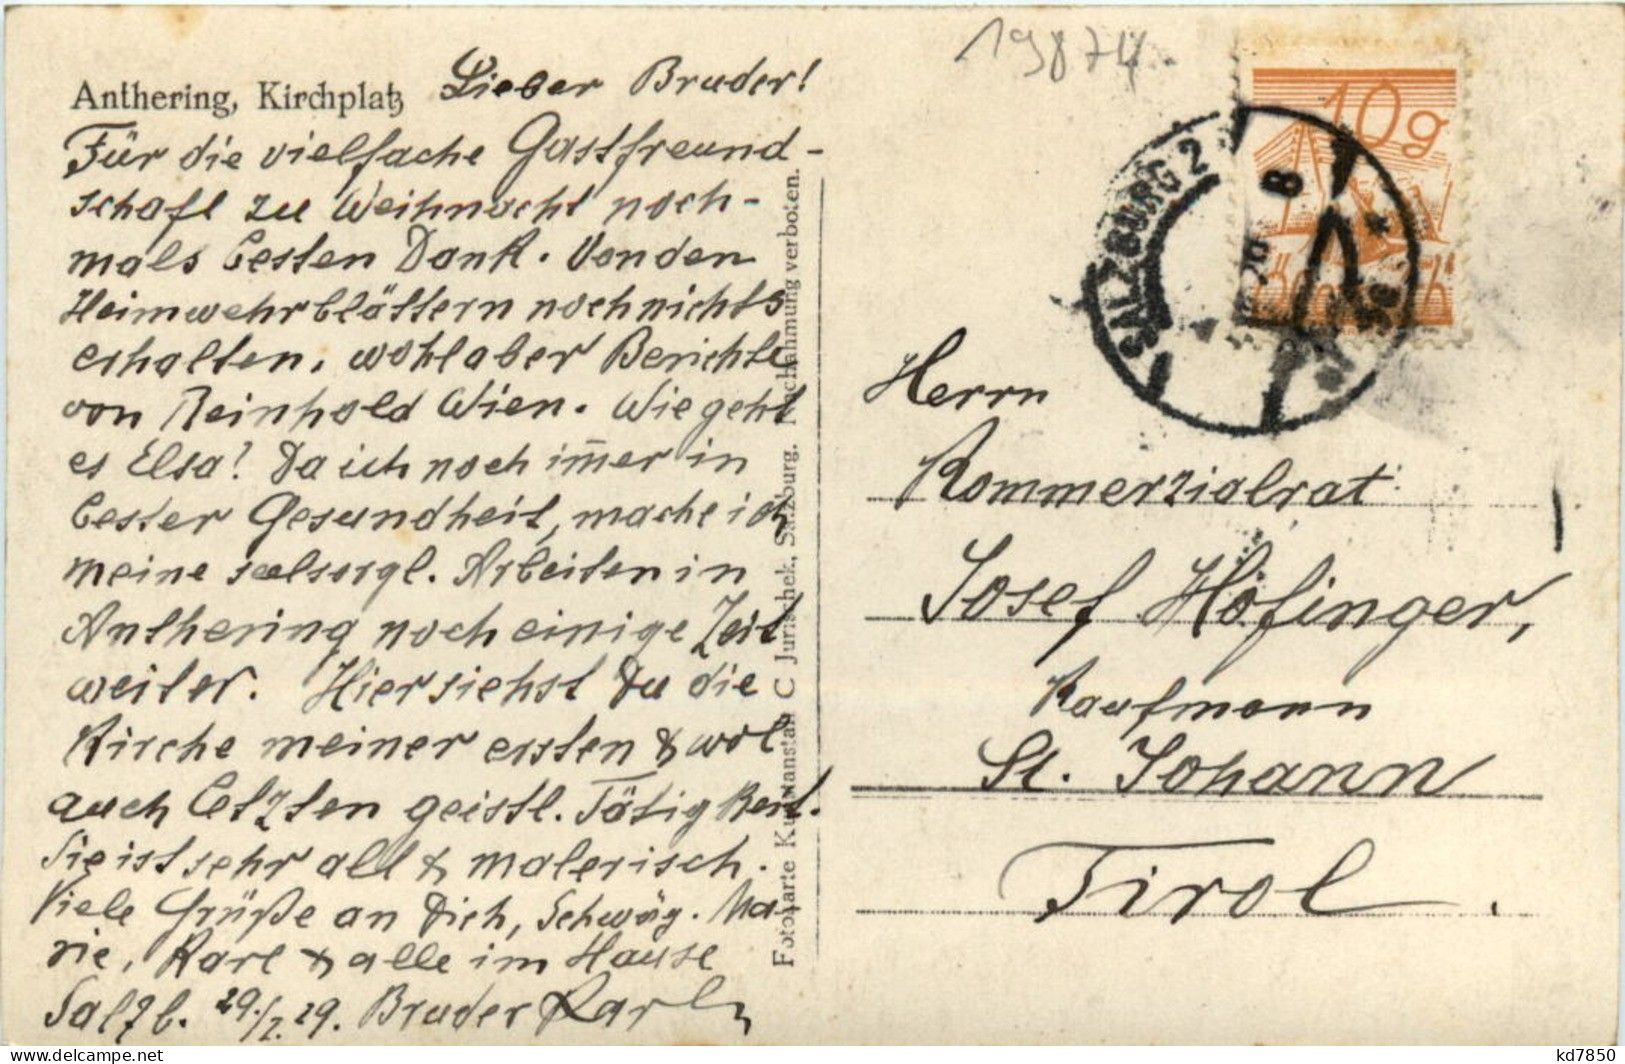 19874.
Anthering, Kirchplatz
Lieber Bruder!
Für die vielfache Gastfreund-
schaft zu Weihnacht noch-
mals besten Dank. Von den
Heimwehrblättern noch nichts
erhalten, wohl aber Berichte
von Reinhold Wien. Wie geht
es Elsa? Da ich noch im̅er in
bester Gesundheit, mache ich
meine seelsorgl. Arbeiten in
Anthering noch einige Zeit
weiter. Hier siehst Du die
Kirche meiner ersten & wol
auch letzten geistl. Tätigkeit.
Sie ist sehr alt & malerisch.
Viele Grüße an Dich, Schwäg. Ma-
rie, Karl & alle im Hause
Salzb. 29./1. 29. Bruder Karl
Fotokarte Kunstanstalt C Jurischek, Salzburg. Nachahmung verboten.
10g
SALZBURG 2
8
Herrn
Kommerzialrat
Josef Höfinger,
Kaufmann
St. Johann
Tirol.
kd7850